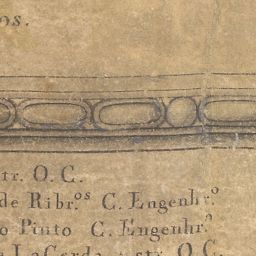 os.
str. O. C.
de Ribr.os C. Engenhr.o
o Pinto C. Engenhr.o
LaCerda str. O. C.